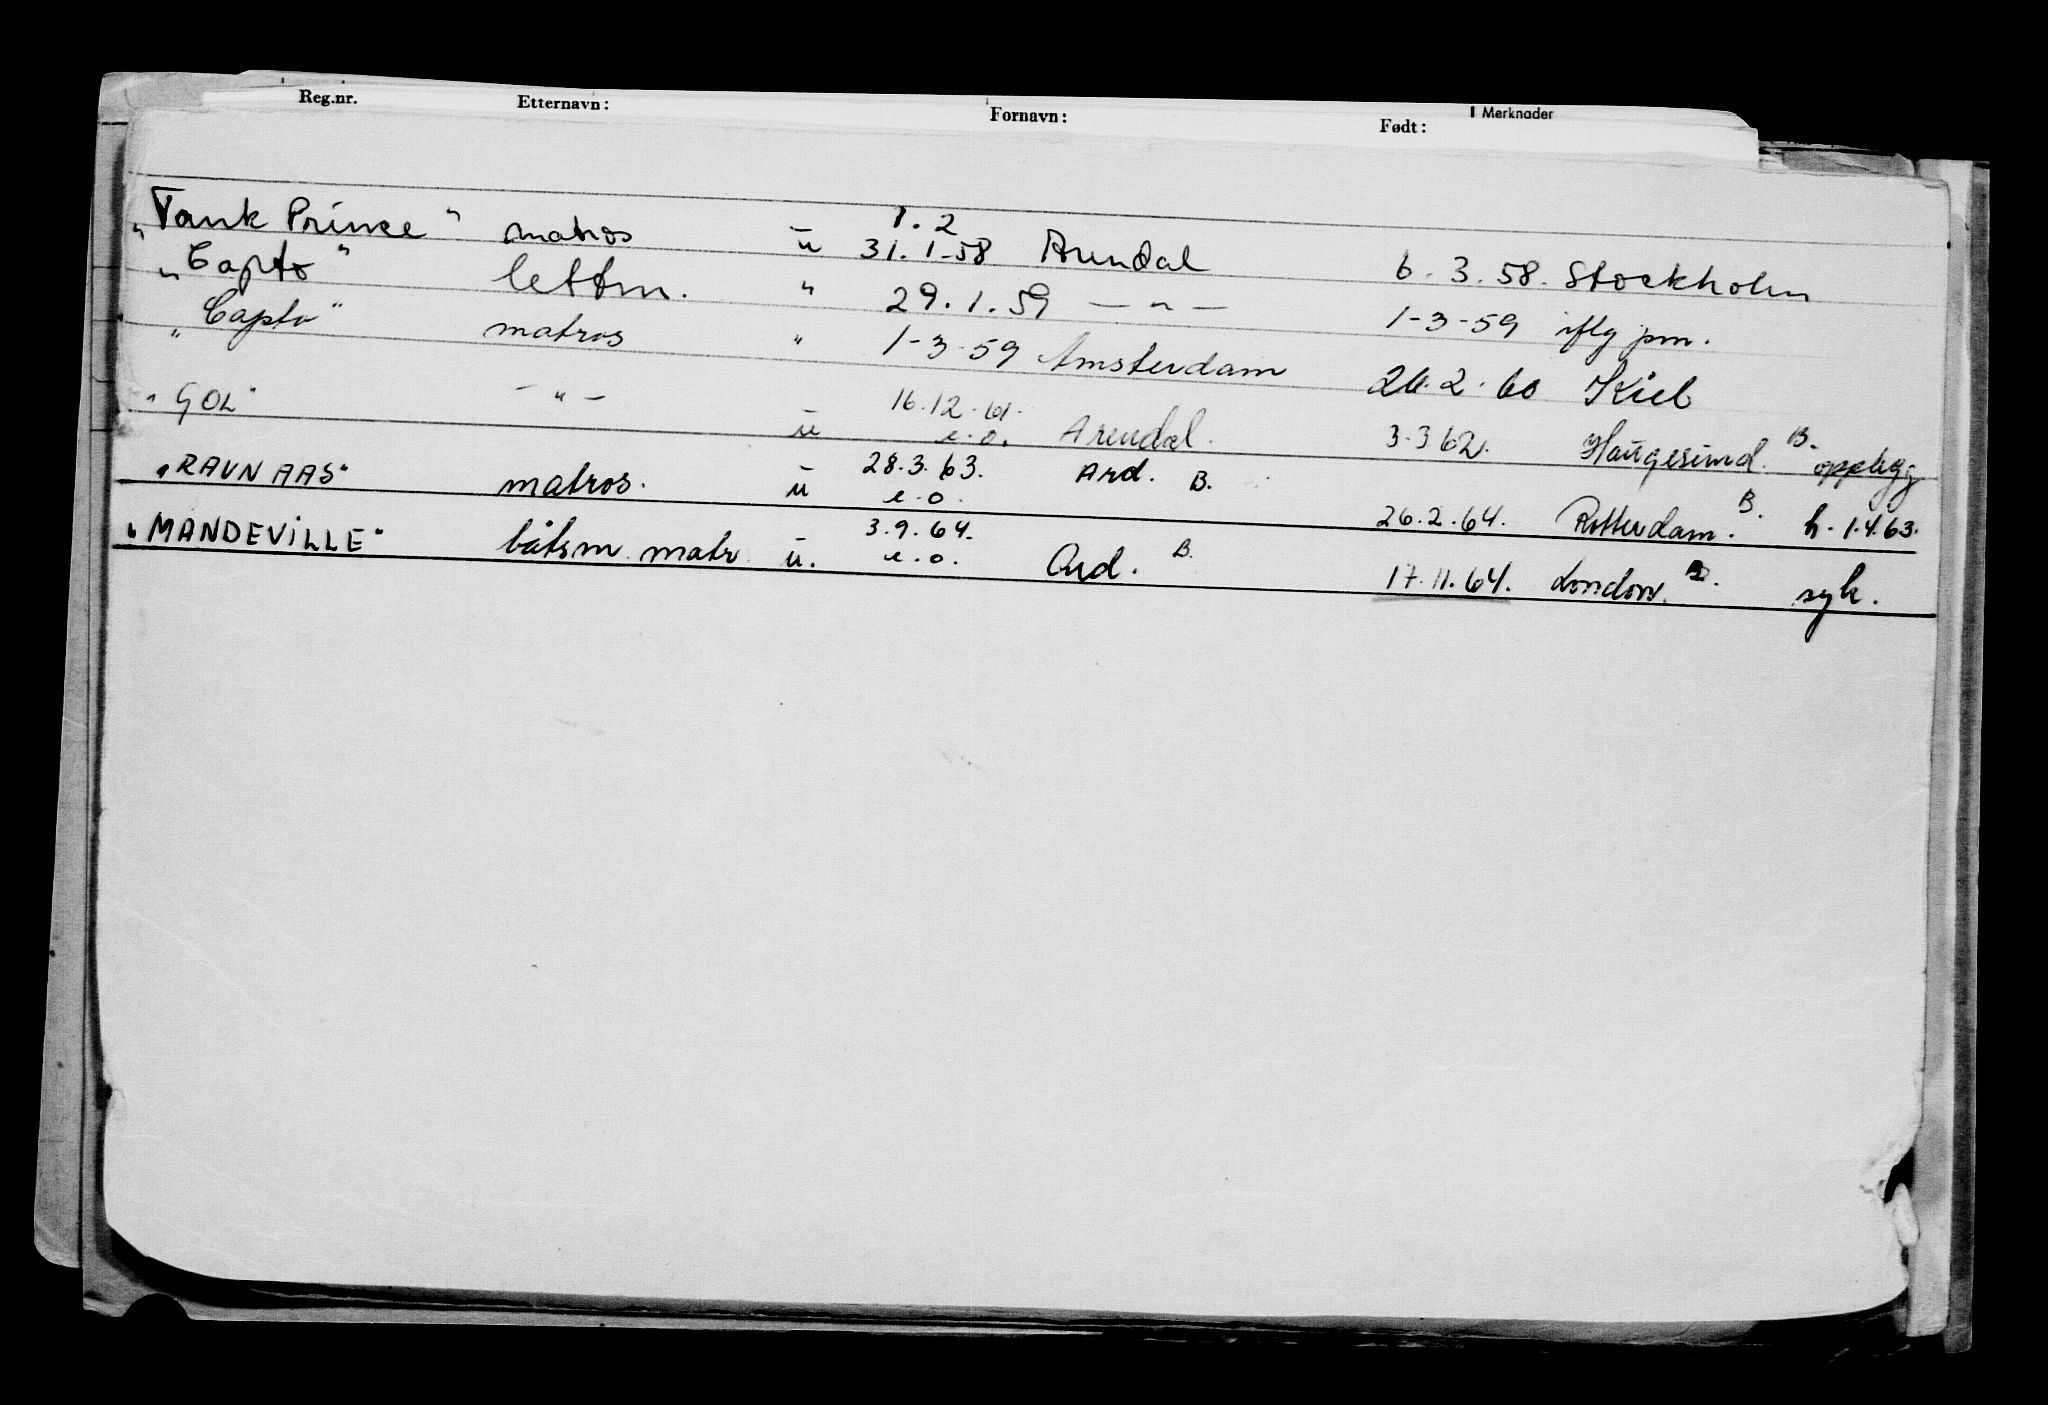 Reg.nr. Etternavn: Fornavn: Født: Merknader
"Tank Prince" matros u 1.2 31.1-58 Arendal 6.3.58. Stockholm
"Capto" lettm. " 29.1.59 — " — 1-3-59 iflg pm.
"Capto" matros " 1-3-59 Amsterdam 26.2.60 Kiel
"GOL" - " - u 16.12.61. e.o. Arendal. 3.3 62. Haugesund. B. opplegg
"RAVNAAS" matros. u 28.3.63. e.o. Ard. B. 26.2.64. Rotterdam. B. h. 1.4.63.
"MANDEVILLE" båtsm. matr u. 3.9.64. e.o. Ard. B. 17.11.64. London. B. syk.